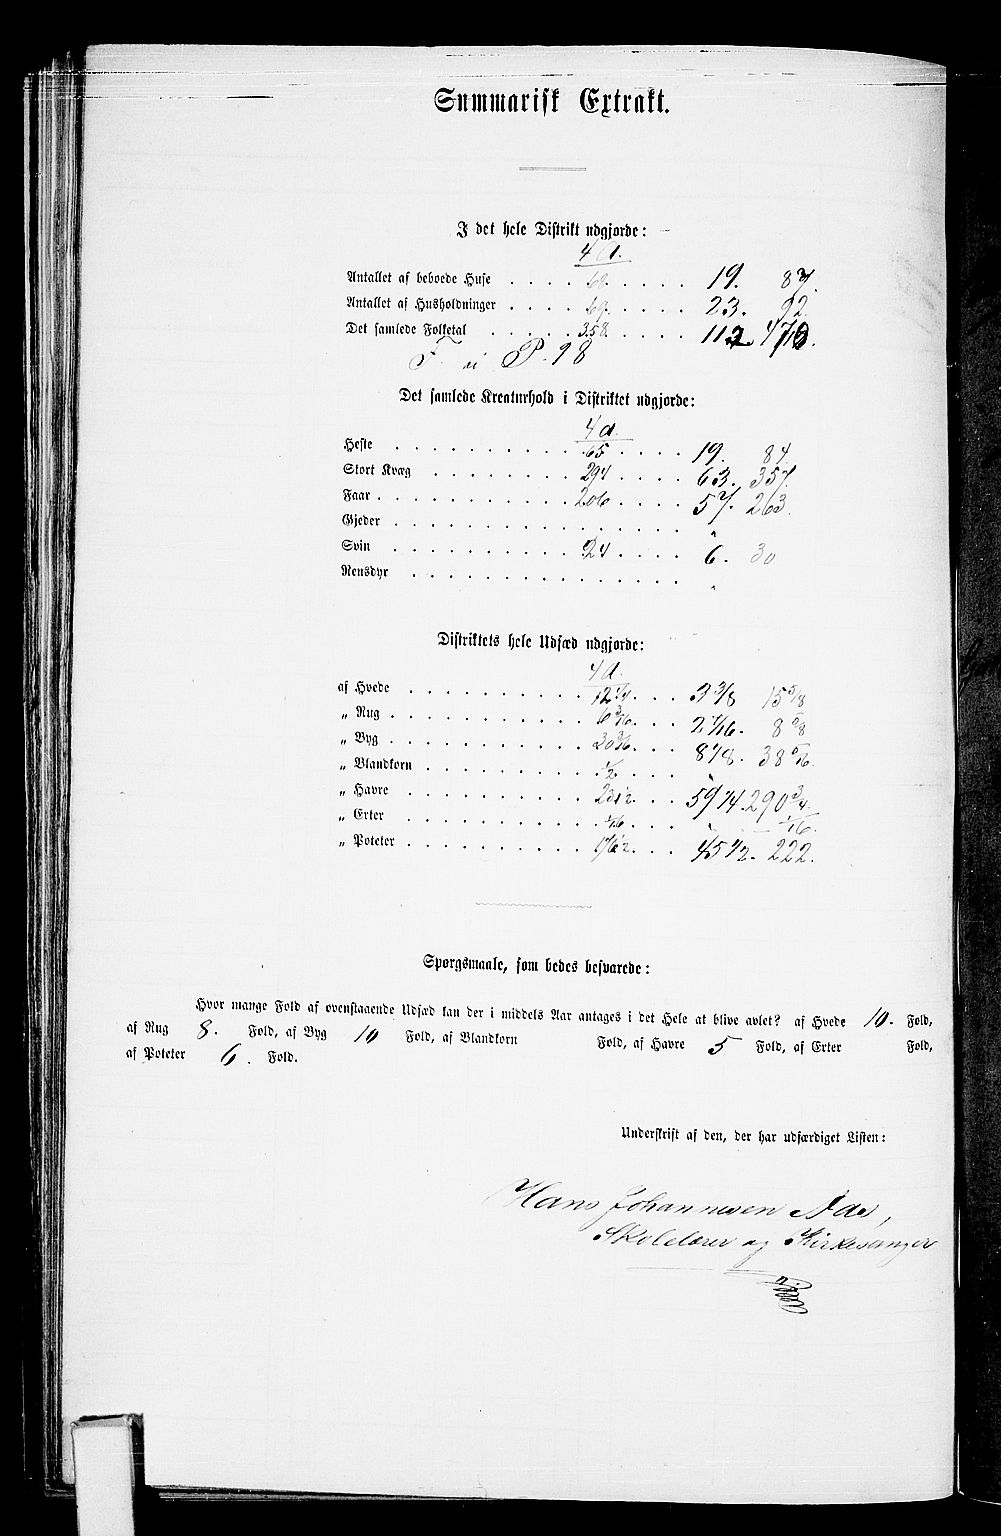 Summarisk Extrakt.
I det hele Distrikt udgjorde:
4 a.
Antallet af beboede Huse . . . . 68. . . . . 19. 87.
Antallet af Husholdninger . . . . 69. . . . . 23. 92.
Det samlede Folketal . . . . 358. . . . . 112 470.
F. u P. 98
Det samlede Kreaturhold i Distriktet udgjorde:
4 a.
Heste . . . . 65 . . . . 19. 84.
Stort Kvæg . . . . 294 . . . . 63. 357.
Faar . . . . 206 . . . . 57. 263.
Gjeder . . . . "
Svin . . . . 24 . . . . 6. 30
Rensdyr . . . . "
Distriktets hele Udsæd udgjorde:
4 a.
af Hvede . . . . 12 1/4 . . . 3 3/8 15 5/8
„ Rug . . . . 6 3/16 . . . 2 7/16. 8 5/8
„ Byg . . . . 30 3/16 . . . 8 1/8. 38 5/16.
„ Blandkorn . . . . 1/2 . . . "
„ Havre . . . . 231 1/2 . . . 59 1/4. 290 3/4.
„ Erter . . . . 1/16 . . . " 1/16.
„ Poteter . . . . 176 1/2 . . . 45 1/2. 222.
Spørgsmaale, som bedes besvarede:
Hvor mange Fold af ovenstaaende Udsæd kan der i middels Aar antages i det Hele at blive avlet? af Hvede 10. Fold,
af Rug 8. Fold, af Byg 10 Fold, af Blandkorn Fold, af Havre 5 Fold, af Erter Fold,
af Poteter 6. Fold.
Underskrift af den, der har udfærdiget Listen:
Hans Johannesen
Skolelærer og Kirkesanger